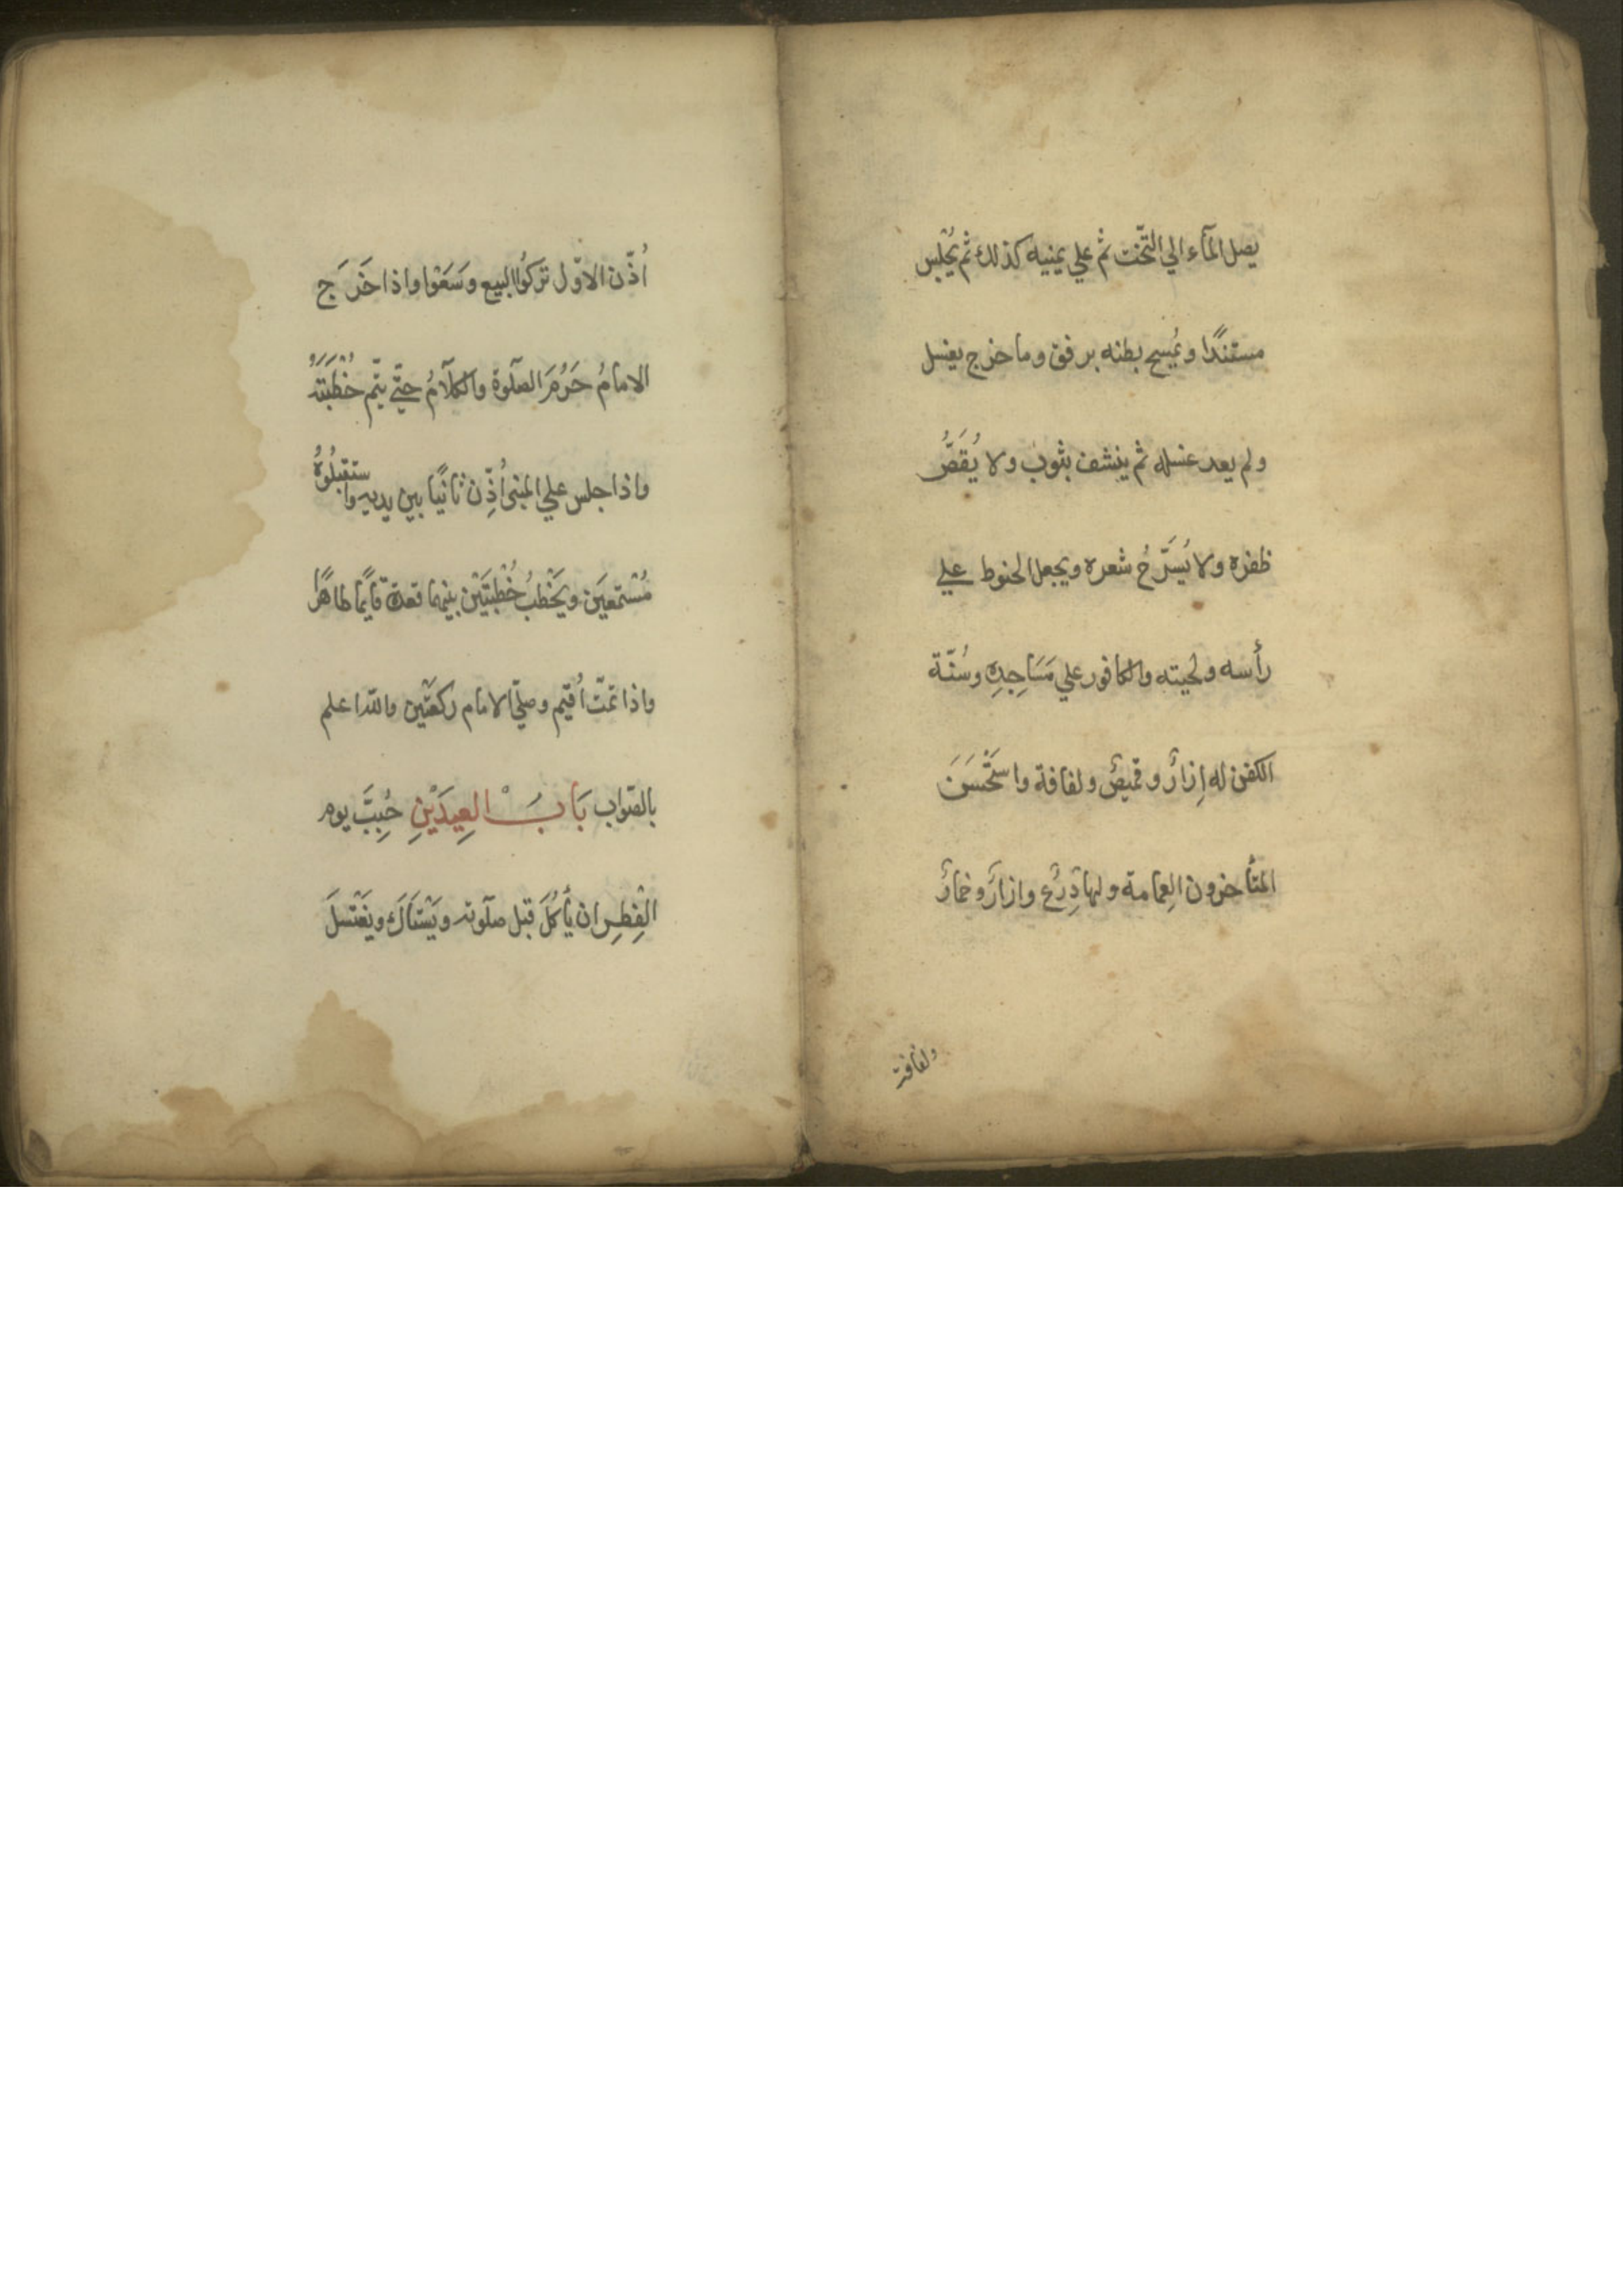 يصل المآء الي التّخت ثم علي يمنيه كذلك ثم يُجْلس
مستندًا و يُمسح بطنه برفق وما خرج يغسل
ولم يعد غسله ثم ينشف بثوب ولا يُقَصُّ
ظفره ولا يُسَرَّحُ شعره ويجعل الحنوط علي
رأسه ولحيته والكافور علي مَسَاجِدِه وسُنّة
الكفن له إزارٌ وقميصٌ ولفافة واسْتَحْسَنَ
المتأخرون العِمامة ولها دِرْعٌ وازارٌ وخمارٌ
ولفافة
اُذّن الاوّل تَرَكُوا البيع وسَعَوْا واذا خَرَجَ
الامامُ حَرُمَ الصّلوة والكلآمُ حتّي يتّم خُطْبَتَهُ
واذا جلس علي المنبر اُذِّن ثانيًا بين يديه واستقبلُوهُ
مُسْتمعَين ويَخْطبُ خُطْبتَيْن بينهما قعدة قآيمًا طاهرًا
واذا تمّت اُقيم وصلّي الامام ركعَتين والله اعلم
بالصّواب بَابُ العِيدَيْنِ حُبِبَّ يوم
الفِطِران يأكُلَ قبل صلوته ويَسْتاكَ ويَغْتسلَ